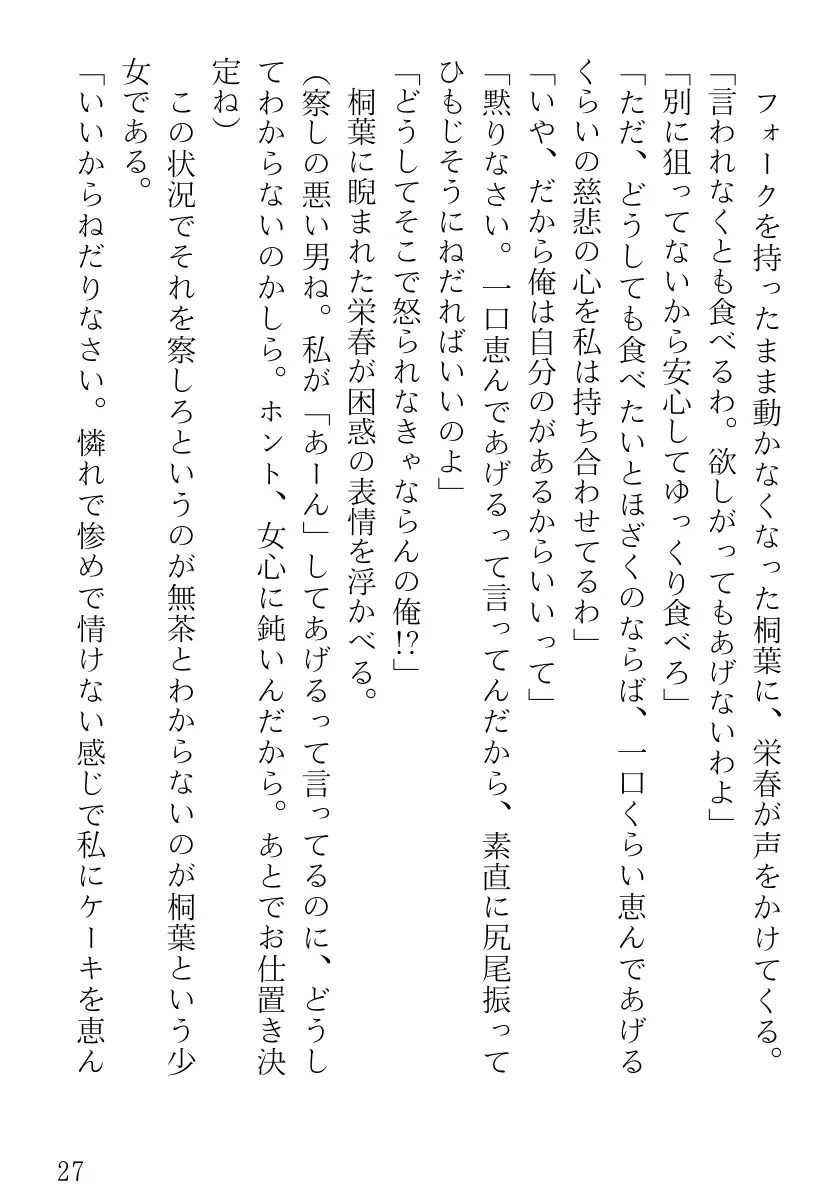 フォークを持ったまま動かなくなった桐葉に、栄春が声をかけてくる。
「言われなくとも食べるわ。欲しがってもあげないわよ」
「別に狙ってないから安心してゆっくり食べろ」
「ただ、どうしても食べたいとほざくのならば、一口くらい恵んであげる
くらいの慈悲の心を私は持ち合わせてるわ」
「いや、だから俺は自分のがあるからいいって」
「黙りなさい。一口恵んであげるって言ってんだから、素直に尻尾振って
ひもじそうにねだればいいのよ」
「どうしてそこで怒られなきゃならんの俺!?」
桐葉に睨まれた栄春が困惑の表情を浮かべる。
（察しの悪い男ね。私が「あーん」してあげるって言ってるのに、どうし
てわからないのかしら。ホント、女心に鈍いんだから。あとでお仕置き決
定ね）
この状況でそれを察しろというのが無茶とわからないのが桐葉という少
女である。
「いいからねだりなさい。憐れで惨めで情けない感じで私にケーキを恵ん
27